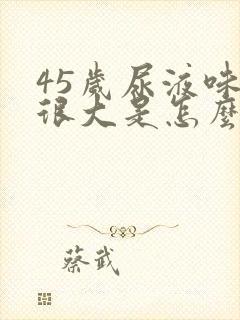 45歲尿液味
很大是怎麼
蔡武